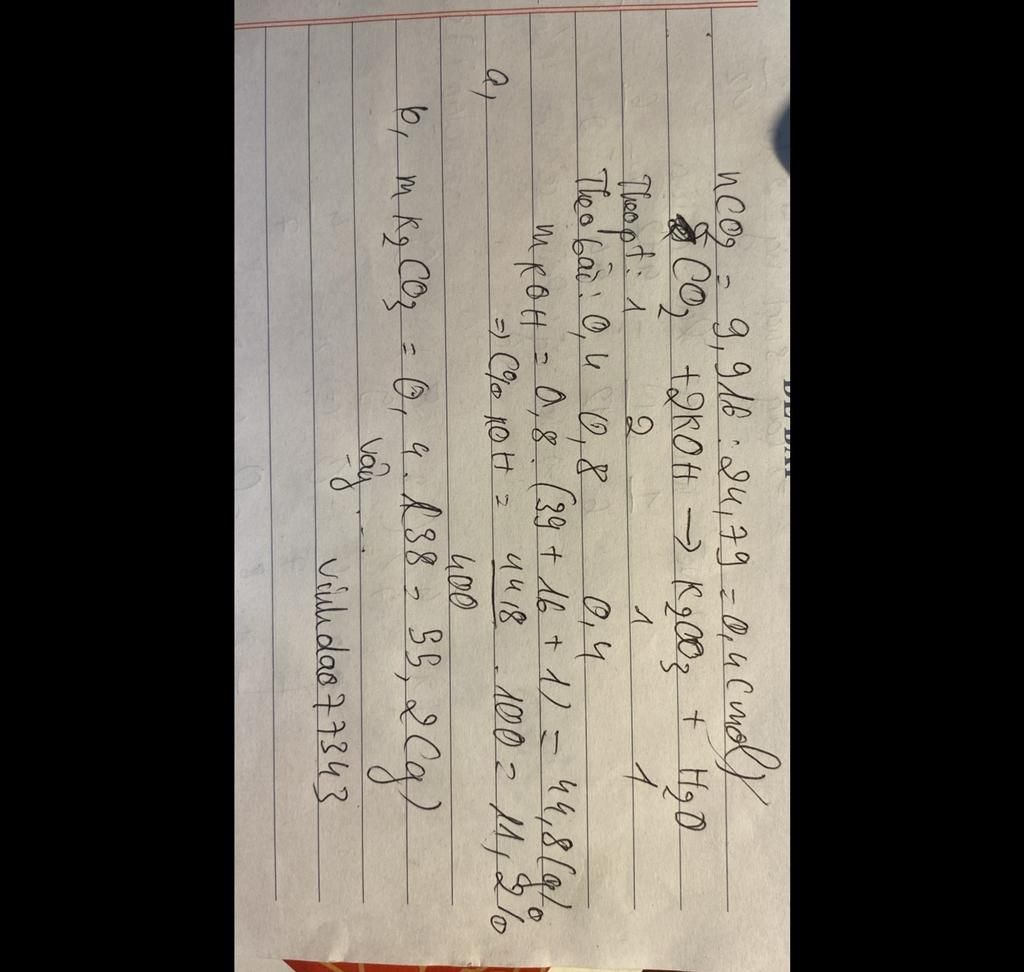 nCO2 = 9,916 : 24,79 = 0,4 (mol)
CO2 + 2KOH → K2CO3 + H2O
Theo pt : 1 2 1 1
Theo bài : 0,4 0,8 0,4
mKOH = 0,8 . (39 + 16 + 1) = 44,8 (g)
a, => C% KOH = 44,8 / 400 . 100 = 11,2%
b, mK2CO3 = 0,4 . 138 = 55,2 (g)
Vậy ...
vinhdao87343